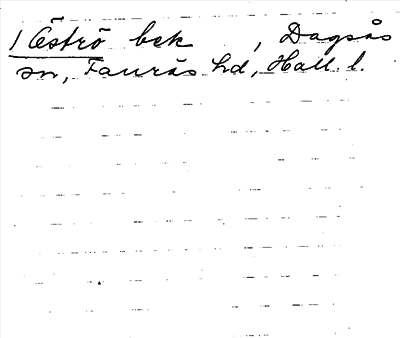 1 Öströ bck , Dagsås
sn, Faurås hd, Hall. l.